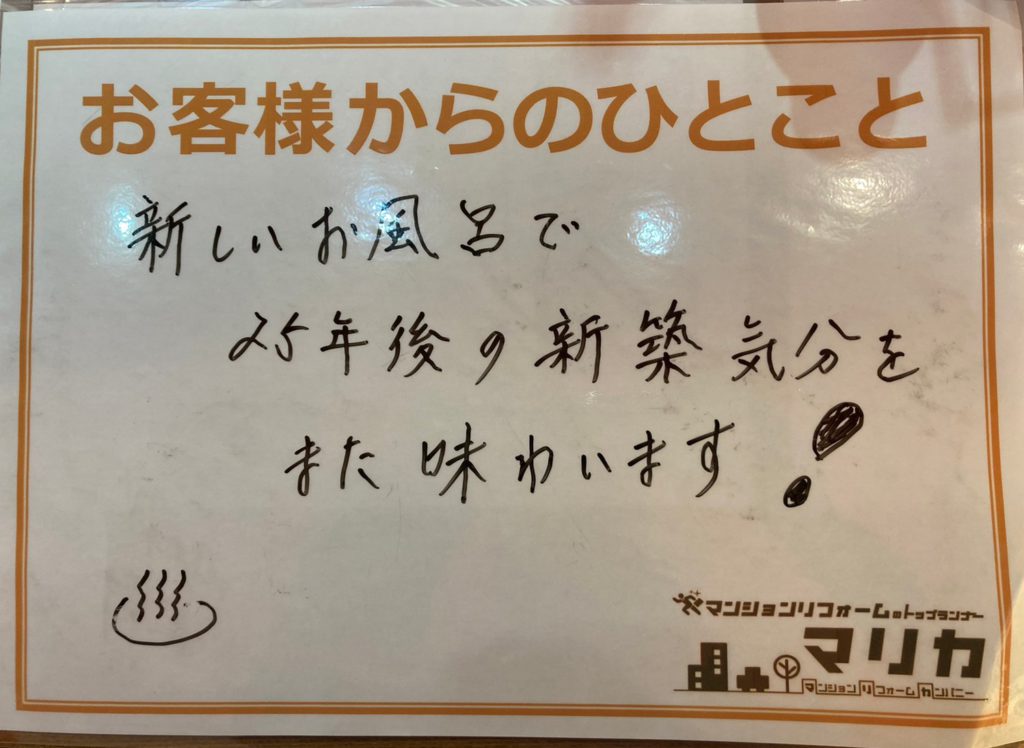 お客様からのひとこと
新しいお風呂で
25年後の新築気分を
また味わいます！
マンションリフォームのトップランナー
マリカ
マンションリフォームカンパニー